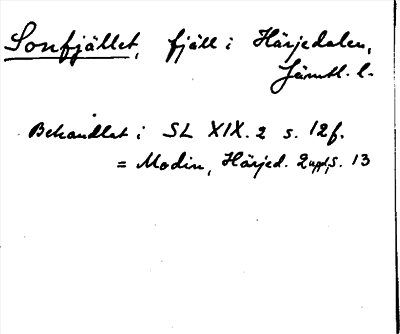 Sonfjället, fjäll i Härjedalen,
Jämtl. l.
Behandlat i SL XIX.2 s. 12f.
= Modin, Härjed. 2 uppl, s. 13